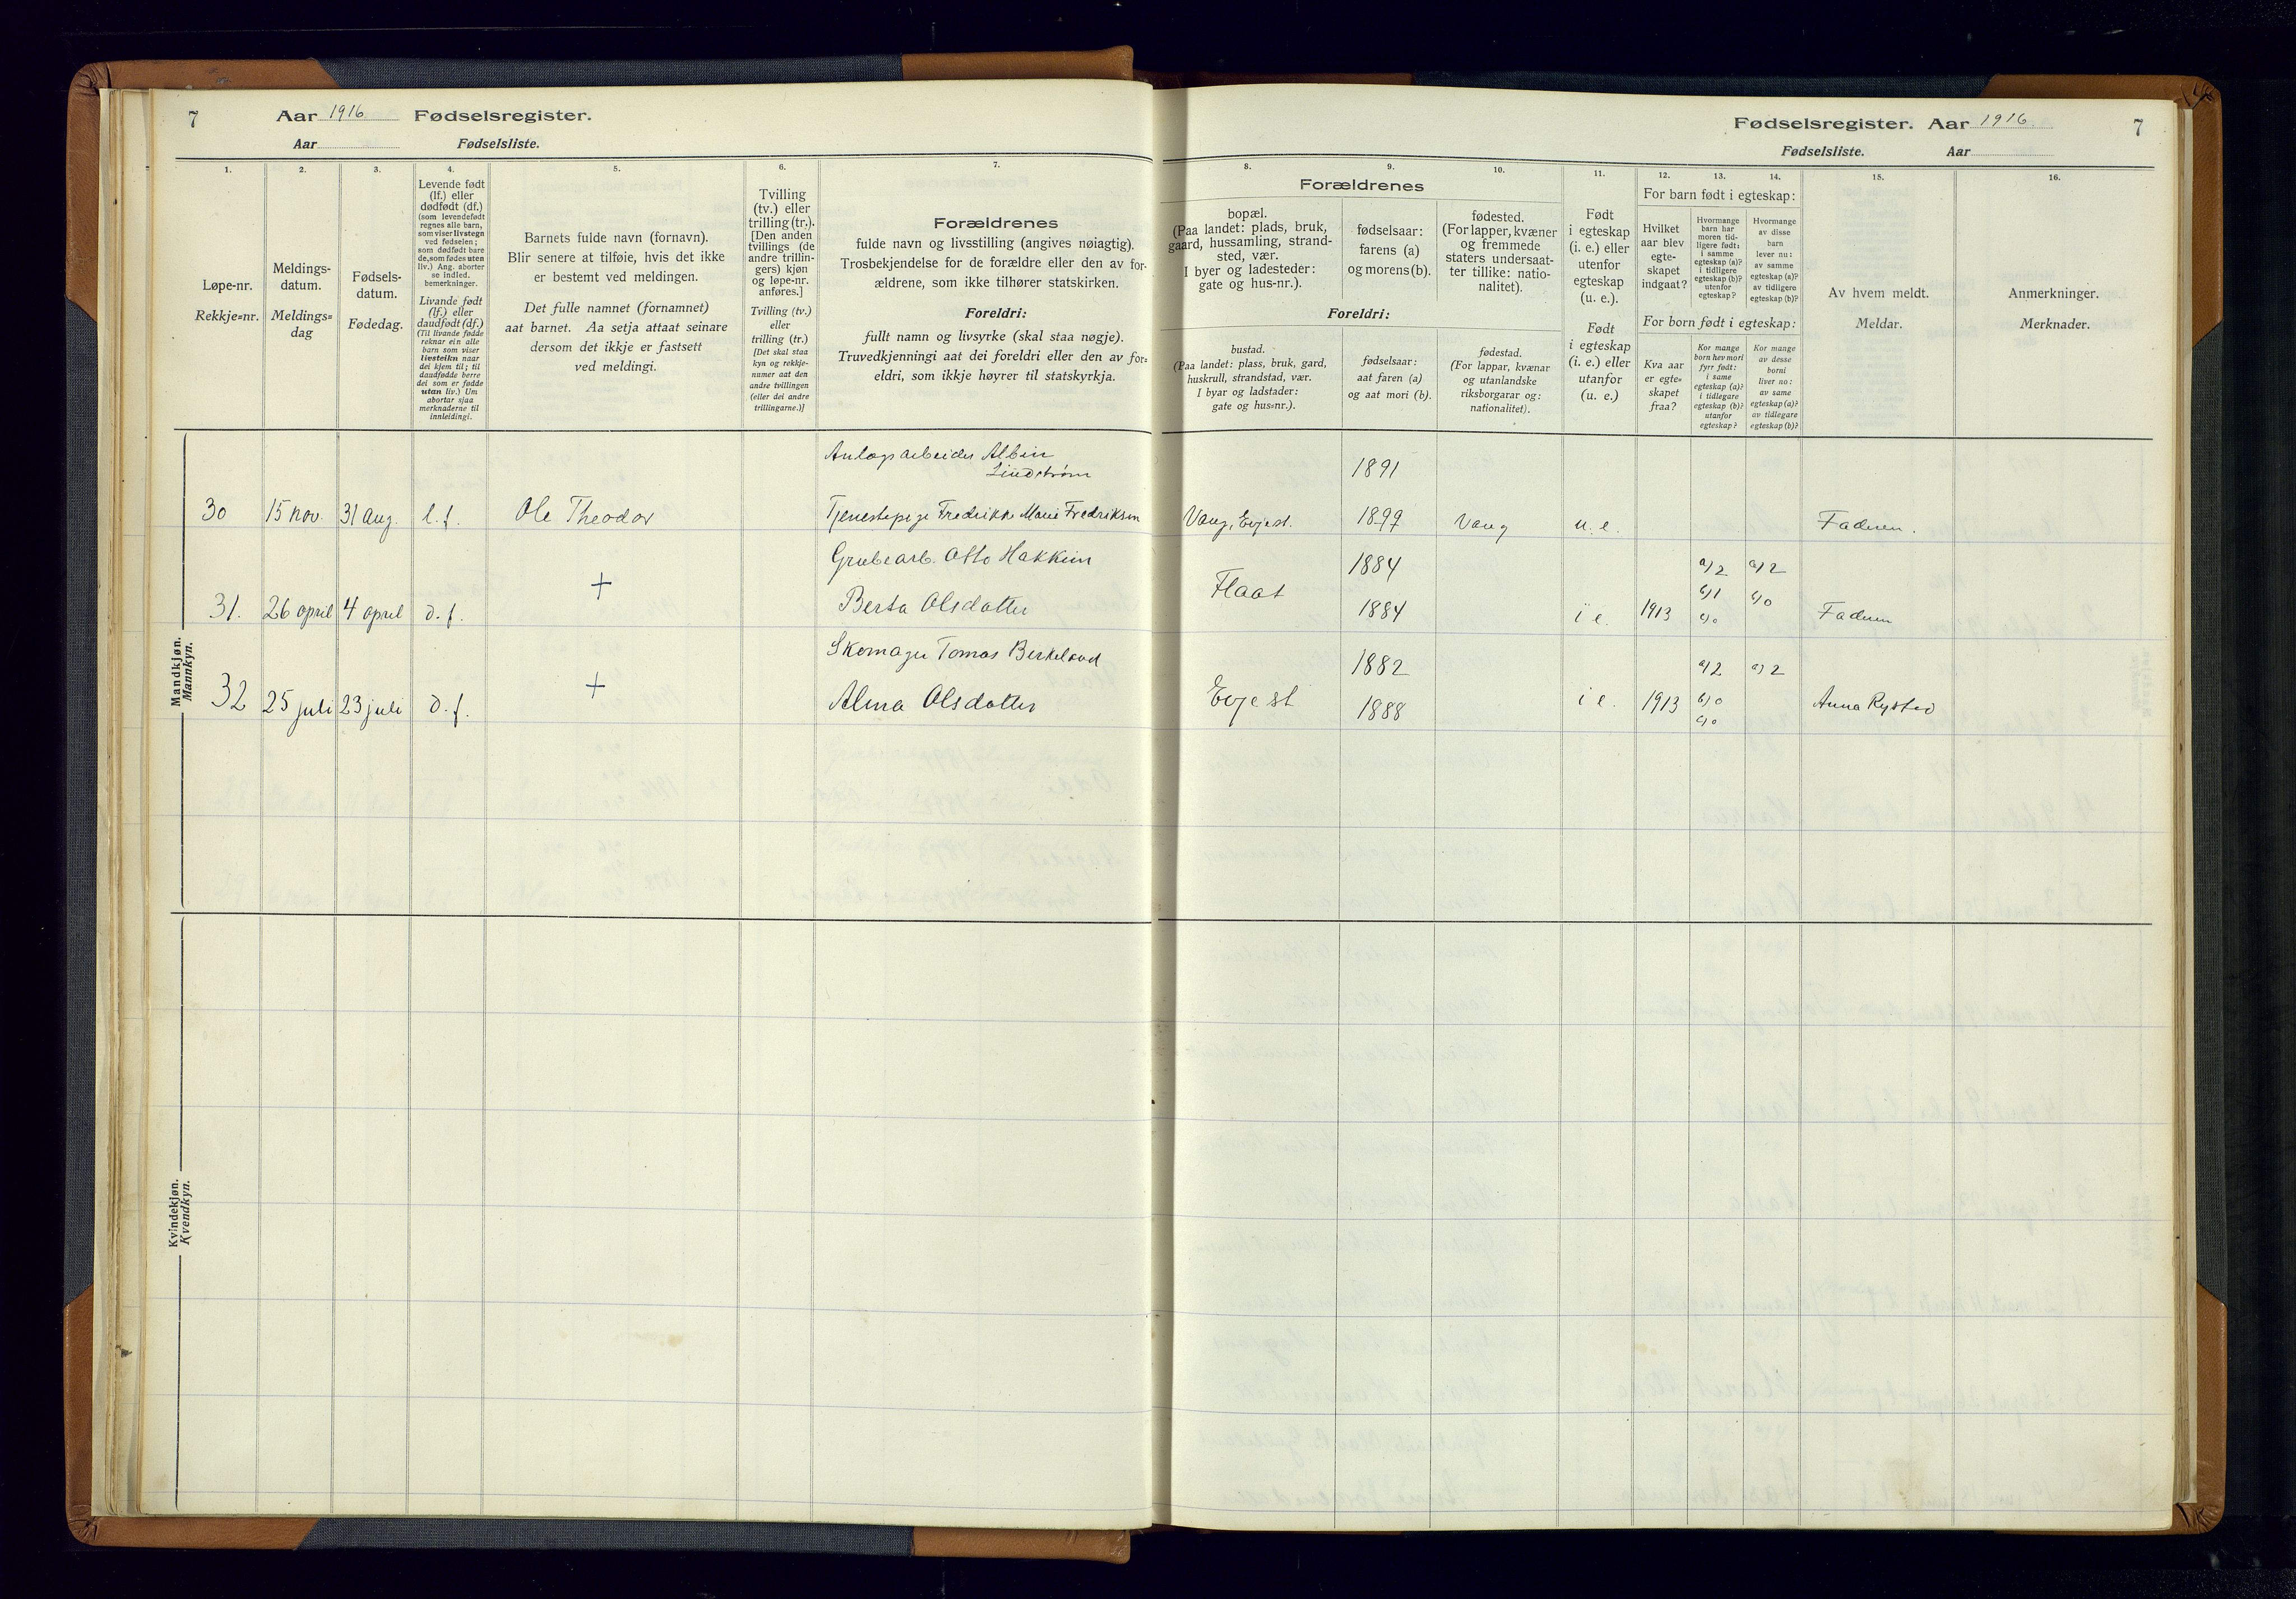 7
Aar 1916 Fødselsregister.
Aar Fødselsliste.
Fødselsregister. Aar 1916.
Fødselsliste. Aar
7
1.
Løpe-nr.
Rekkje=nr.
2.
Meldings-
datum.
Meldings=
dag
3.
Fødsels-
datum.
Fødedag.
4.
Levende født
(lf.) eller
dødfødt (df.)
(som levendefødt
regnes alle barn,
som viser livstegn
ved fødselen;
som dødfødt bare
de, som fødes uten
liv.) Ang. aborter
se indled.
bemerkninger.
Livande født
(lf.) eller
daudfødt (df.)
(Til livande fødde
reknar ein alle
barn som viser
livsteikn naar
dei kjem til; til
daudfødde berre
dei som er fødde
utan liv.) Um
abortar sjaa
merknaderne til
innleidingi.
5.
Barnets fulde navn (fornavn).
Blir senere at tilføie, hvis det ikke
er bestemt ved meldingen.
Det fulle namnet (fornamnet)
aat barnet. Aa setja attaat seinare
dersom det ikkje er fastsett
ved meldingi.
6.
Tvilling
(tv.) eller
trilling (tr.).
[Den anden
tvillings (de
andre trillin-
gers) kjøn
og løpe-nr.
anføres.]
Tvilling (tv.)
eller
trilling (tr.)
[Det skal staa
kyn og rekkje-
numer aat den
andre tvillingen
(eller dei andre
trillingarne.)]
7.
Forældrenes
fulde navn og livsstilling (angives nøiagtig).
Trosbekjendelse for de forældre eller den av for-
ældrene, som ikke tilhører statskirken.
Foreldri:
fullt namn og livsyrke (skal staa nøgje).
Truvedkjenningi aat dei foreldri eller den av for=
eldri, som ikkje høyrer til statskyrkja.
Forældrenes
8.
bopæl.
(Paa landet: plads, bruk,
gaard, hussamling, strand-
sted, vær.
I byer og ladesteder:
gate og hus-nr.).
9.
fødselsaar:
farens (a)
og morens (b).
10.
fødested.
(For lapper, kvæner
og fremmede
staters undersaat-
ter tillike: natio-
nalitet).
Foreldri:
bustad.
(Paa landet: plass, bruk, gard,
huskrull, strandstad, vær.
I byar og ladstader:
gate og hus=nr.).
fødselsaar:
aat faren (a)
og aat mori (b).
fødestad.
(For lappar, kvænar
og utanlandske
riksborgarar og:
nationalitet).
11.
Født
i egteskap
(i. e.) eller
utenfor
egteskap
(u. e.).
Født
i egteskap
(i. e.) eller
utanfor
(u. e.)
For barn født i egteskap:
12.
Hvilket
aar blev
egte-
skapet
indgaat?
13.
Hvormange
barn har
moren tid-
ligere født:
i samme
egteskap (a)?
i tidligere
egteskap (b)?
utenfor
egteskap?
14.
Hvormange
av disse
barn
lever nu:
av samme
egteskap (a)?
av tidligere
egteskap (b)?
For born født i egteskap:
Kva aar
er egte=
skapet
fraa?
Kor mange
born hev mori
fyr født:
i same
egteskap (a)?
i tidlegare
egteskap (b)?
utanfor
egteskap?
Kor mange
av desse
borni
liver no:
av same
egteskap (a)?
av tidlegare
egteskap (b)?
15.
Av hvem meldt.
Meldar.
16.
Anmerkninger.
Merknader.
Mandkjøn.
Mannkyn.
Anlægsarbeider Albin
Lindstrøm 1891
30 15 nov. 31 aug. l. f. Ole Theodor Tjenestepige Fredrikke Marie Fredriksen Vaug, Evje st. 1897 Vaug u. e. Faderen.
Grubearb. Otto Hakkim 1884 a) 2 a) 2
31. 26 april 4 april d. f. + Berta Olsdatter Flaat 1884 i e. 1913 b) 1 c) 0 b) 0 Faderen
Skomager Tomas Birkeland 1882 a) 2 a) 2
32 25 juli 23 juli d. f. + Alma Olsdatter Evje st 1888 i e. 1913 b) 0 c) 0 Anna Rysted
Kvindekjøn.
Kvendkyn.